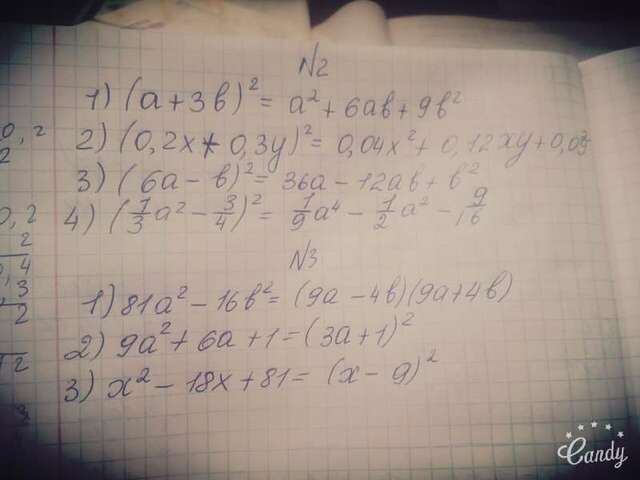 N2
1) (a+3b)² = a² + 6ab + 9b²
2) (0,2x + 0,3y)² = 0,04x² + 0,12xy + 0,09
3) (6a - b)² = 36a - 12ab + b²
4) (1/3 a² - 3/4)² = 1/9 a⁴ - 1/2 a² - 9/16
N3
1) 81a² - 16b² = (9a - 4b)(9a + 4b)
2) 9a² + 6a + 1 = (3a + 1)²
3) x² - 18x + 81 = (x - 9)²
Candy